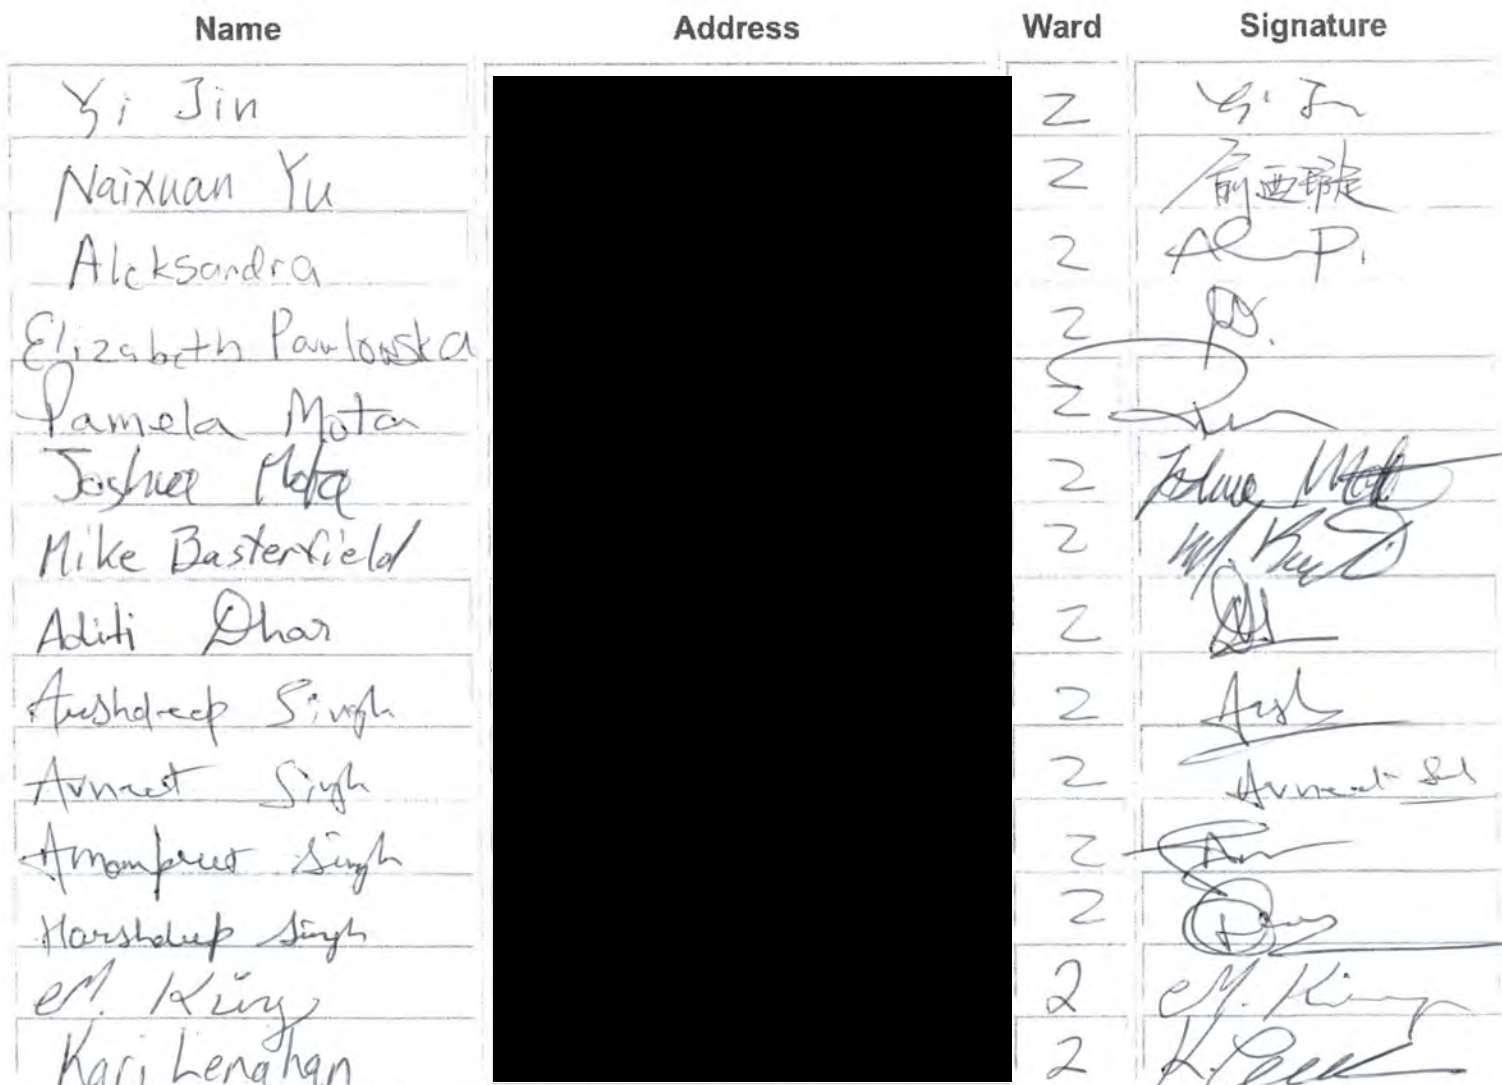 Name Address Ward Signature
Yi Jin 2 Yi Jin
Naixuan Yu 2
Aleksandra 2 P.
Elizabeth Pawlowska 2
Pamela Mota 2
Joshua Mota 2 Joshua Mota
Mike Basterfield 2 M.
Aditi Dhar 2
Arshdeep Singh 2 Arsh
Avneet Singh 2 Avneet
Amanpreet Singh 2
Harshdeep Singh 2
M. King 2 M. King
Kari Lenahan 2 K.